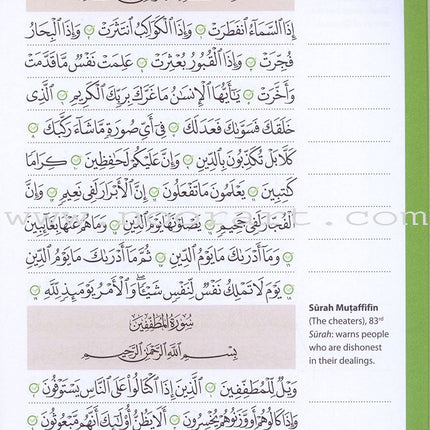 إِذَا ٱلسَّمَآءُ ٱنفَطَرَتْ وَإِذَا ٱلْكَوَاكِبُ ٱنتَثَرَتْ وَإِذَا ٱلْبِحَارُ
فُجِّرَتْ وَإِذَا ٱلْقُبُورُ بُعْثِرَتْ عَلِمَتْ نَفْسٌ مَّا قَدَّمَتْ
وَأَخَّرَتْ يَٰٓأَيُّهَا ٱلْإِنسَٰنُ مَا غَرَّكَ بِرَبِّكَ ٱلْكَرِيمِ ٱلَّذِى
خَلَقَكَ فَسَوَّىٰكَ فَعَدَلَكَ فِىٓ أَىِّ صُورَةٍ مَّا شَآءَ رَكَّبَكَ
كَلَّا بَلْ تُكَذِّبُونَ بِٱلدِّينِ وَإِنَّ عَلَيْكُمْ لَحَٰفِظِينَ كِرَامًا
كَٰتِبِينَ يَعْلَمُونَ مَا تَفْعَلُونَ إِنَّ ٱلْأَبْرَارَ لَفِى نَعِيمٍ وَإِنَّ
ٱلْفُجَّارَ لَفِى جَحِيمٍ يَصْلَوْنَهَا يَوْمَ ٱلدِّينِ وَمَا هُمْ عَنْهَا بِغَآئِبِينَ
وَمَآ أَدْرَىٰكَ مَا يَوْمُ ٱلدِّينِ ثُمَّ مَآ أَدْرَىٰكَ مَا يَوْمُ ٱلدِّينِ
يَوْمَ لَا تَمْلِكُ نَفْسٌ لِّنَفْسٍ شَيْـًٔا ۖ وَٱلْأَمْرُ يَوْمَئِذٍ لِّلَّهِ
سُورَةُ ٱلْمُطَفِّفِينَ
بِسْمِ ٱللَّهِ ٱلرَّحْمَٰنِ ٱلرَّحِيمِ
وَيْلٌ لِّلْمُطَفِّفِينَ ٱلَّذِينَ إِذَا ٱكْتَالُوا۟ عَلَى ٱلنَّاسِ يَسْتَوْفُونَ
وَإِذَا كَالُوهُمْ أَو وَّزَنُوهُمْ يُخْسِرُونَ أَلَا يَظُنُّ أُو۟لَٰٓئِكَ أَنَّهُم مَّبْعُوثُونَ
Sūrah Muṭaffifīn
(The cheaters), 83rd
Sūrah: warns people
who are dishonest
in their dealings.